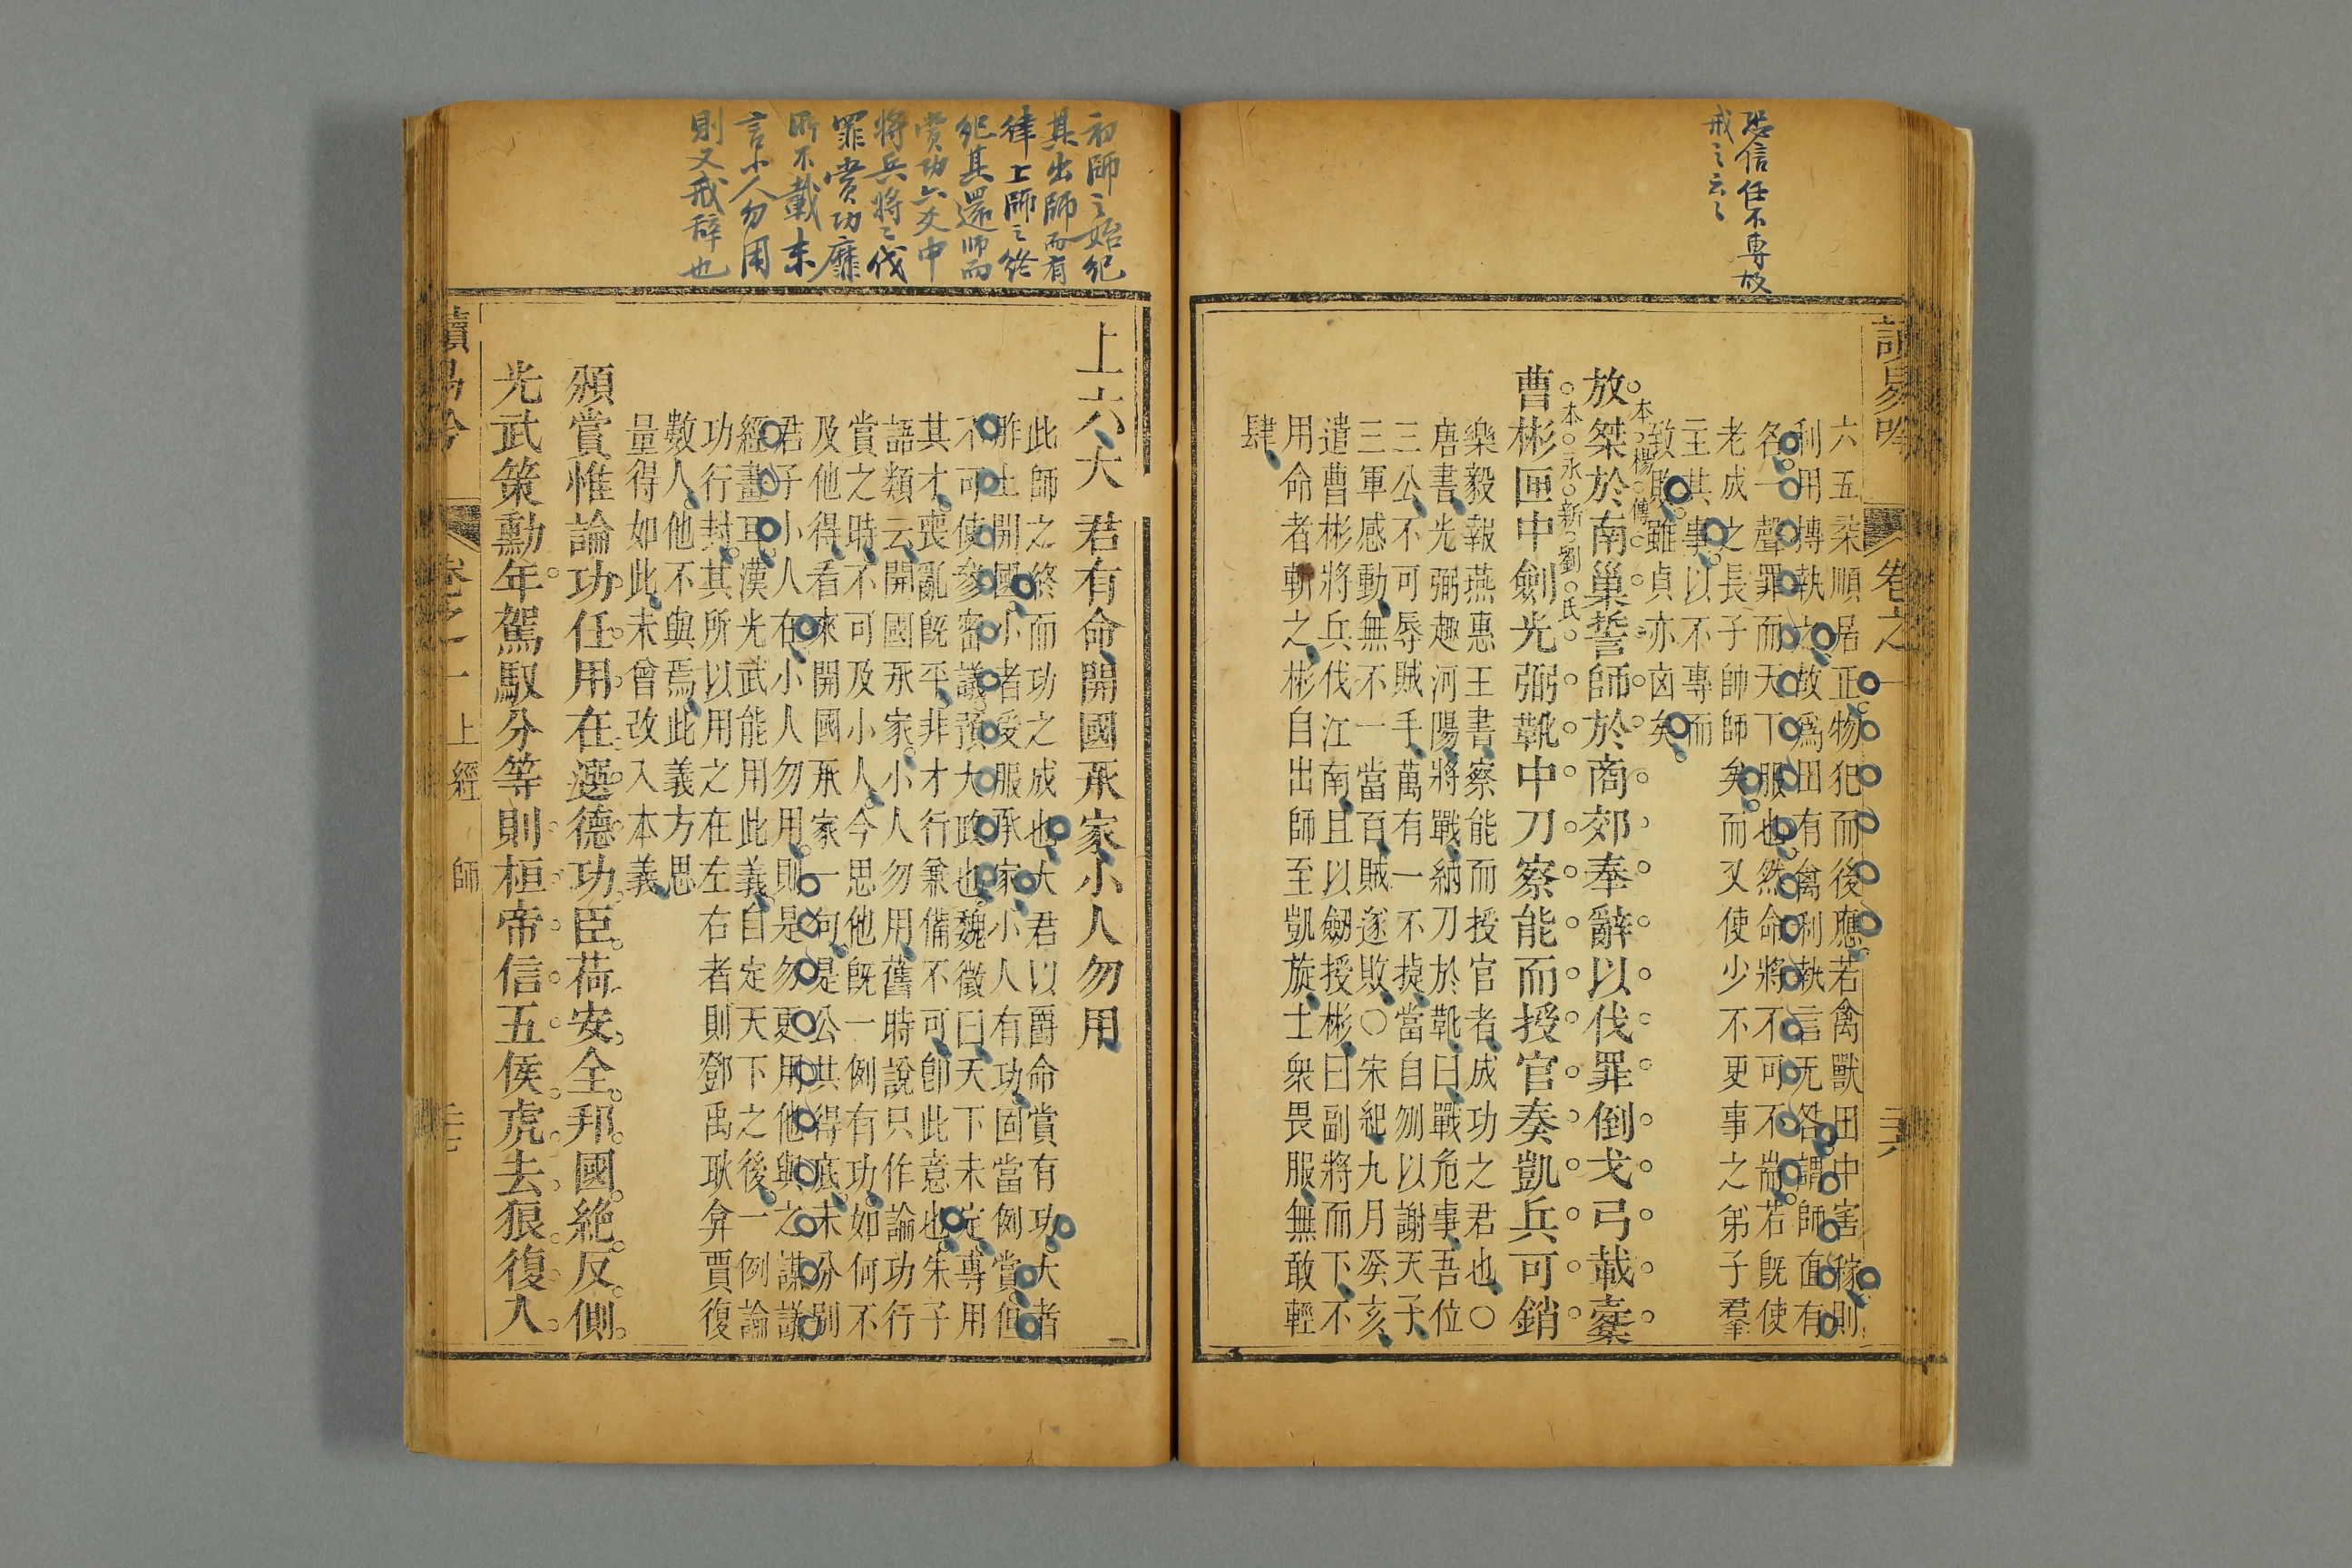 恐信任不專故
戒之云々
讀易吟
卷之一
六五柔順居正物犯而後應若禽獸田中害稼則
利用搏執之故爲田有禽利執言无咎謂師面有
名一聲罪而天下服也然命將不可不耑若旣使
老成之長子帥師矣而又使少不更事之弟子羣
主其事以不專而
致敗雖貞亦凶矣
本楊傳
放桀於南巢誓師於商郊奉辭以伐罪倒戈弓載櫜
本永新劉氏
曹彬匣中劍光弼靴中刀察能而授官奏凱兵可銷
樂毅報燕惠王書察能而授官者成功之君也○
唐書光弼趣河陽將戰納刀於靴曰戰危事吾位
三公不可辱賊手萬有一不捷當自刎以謝天子
三軍感動無不一當百賊遂敗○宋紀九月癸亥
遣曹彬將兵伐江南且以劒授彬曰副將而下不
用命者斬之彬自出師至凱旋士衆畏服無敢輕
肆
初師之始紀
其出師而有
律上師之終
紀其還師而
賞功六爻中
將兵將々伐
罪賞功靡
所不載末
言小人勿用
則又戒辞也
上六大君有命開國承家小人勿用
此師之終而功之成也大君以爵命賞有功大者
胙土開國小者受服承家小人有功固當例賞但
不可使參密議預大政也魏徵曰天下未定專用
其才喪亂旣平非才行兼備不可卽此意也朱子
語類云開國承家小人勿用舊時說只作論功行
賞之時不可及小人今思他旣一例有功如何不
及他得看來開國承家一句是公共得底未分別
君子小人在小人勿用則是勿更用他與之謀議
經畫耳漢光武能用此義自定天下之後一例論
功行封其所以用之在左右者則鄧禹耿弇賈復
數人他不與焉此義方思
量得如此未曾改入本義
頒賞惟論功任用在選德功臣荷安全邦國絶反側
光武策勳年駕馭分等則桓帝信五侯虎去狼復入
讀易吟
卷之一 上經 師